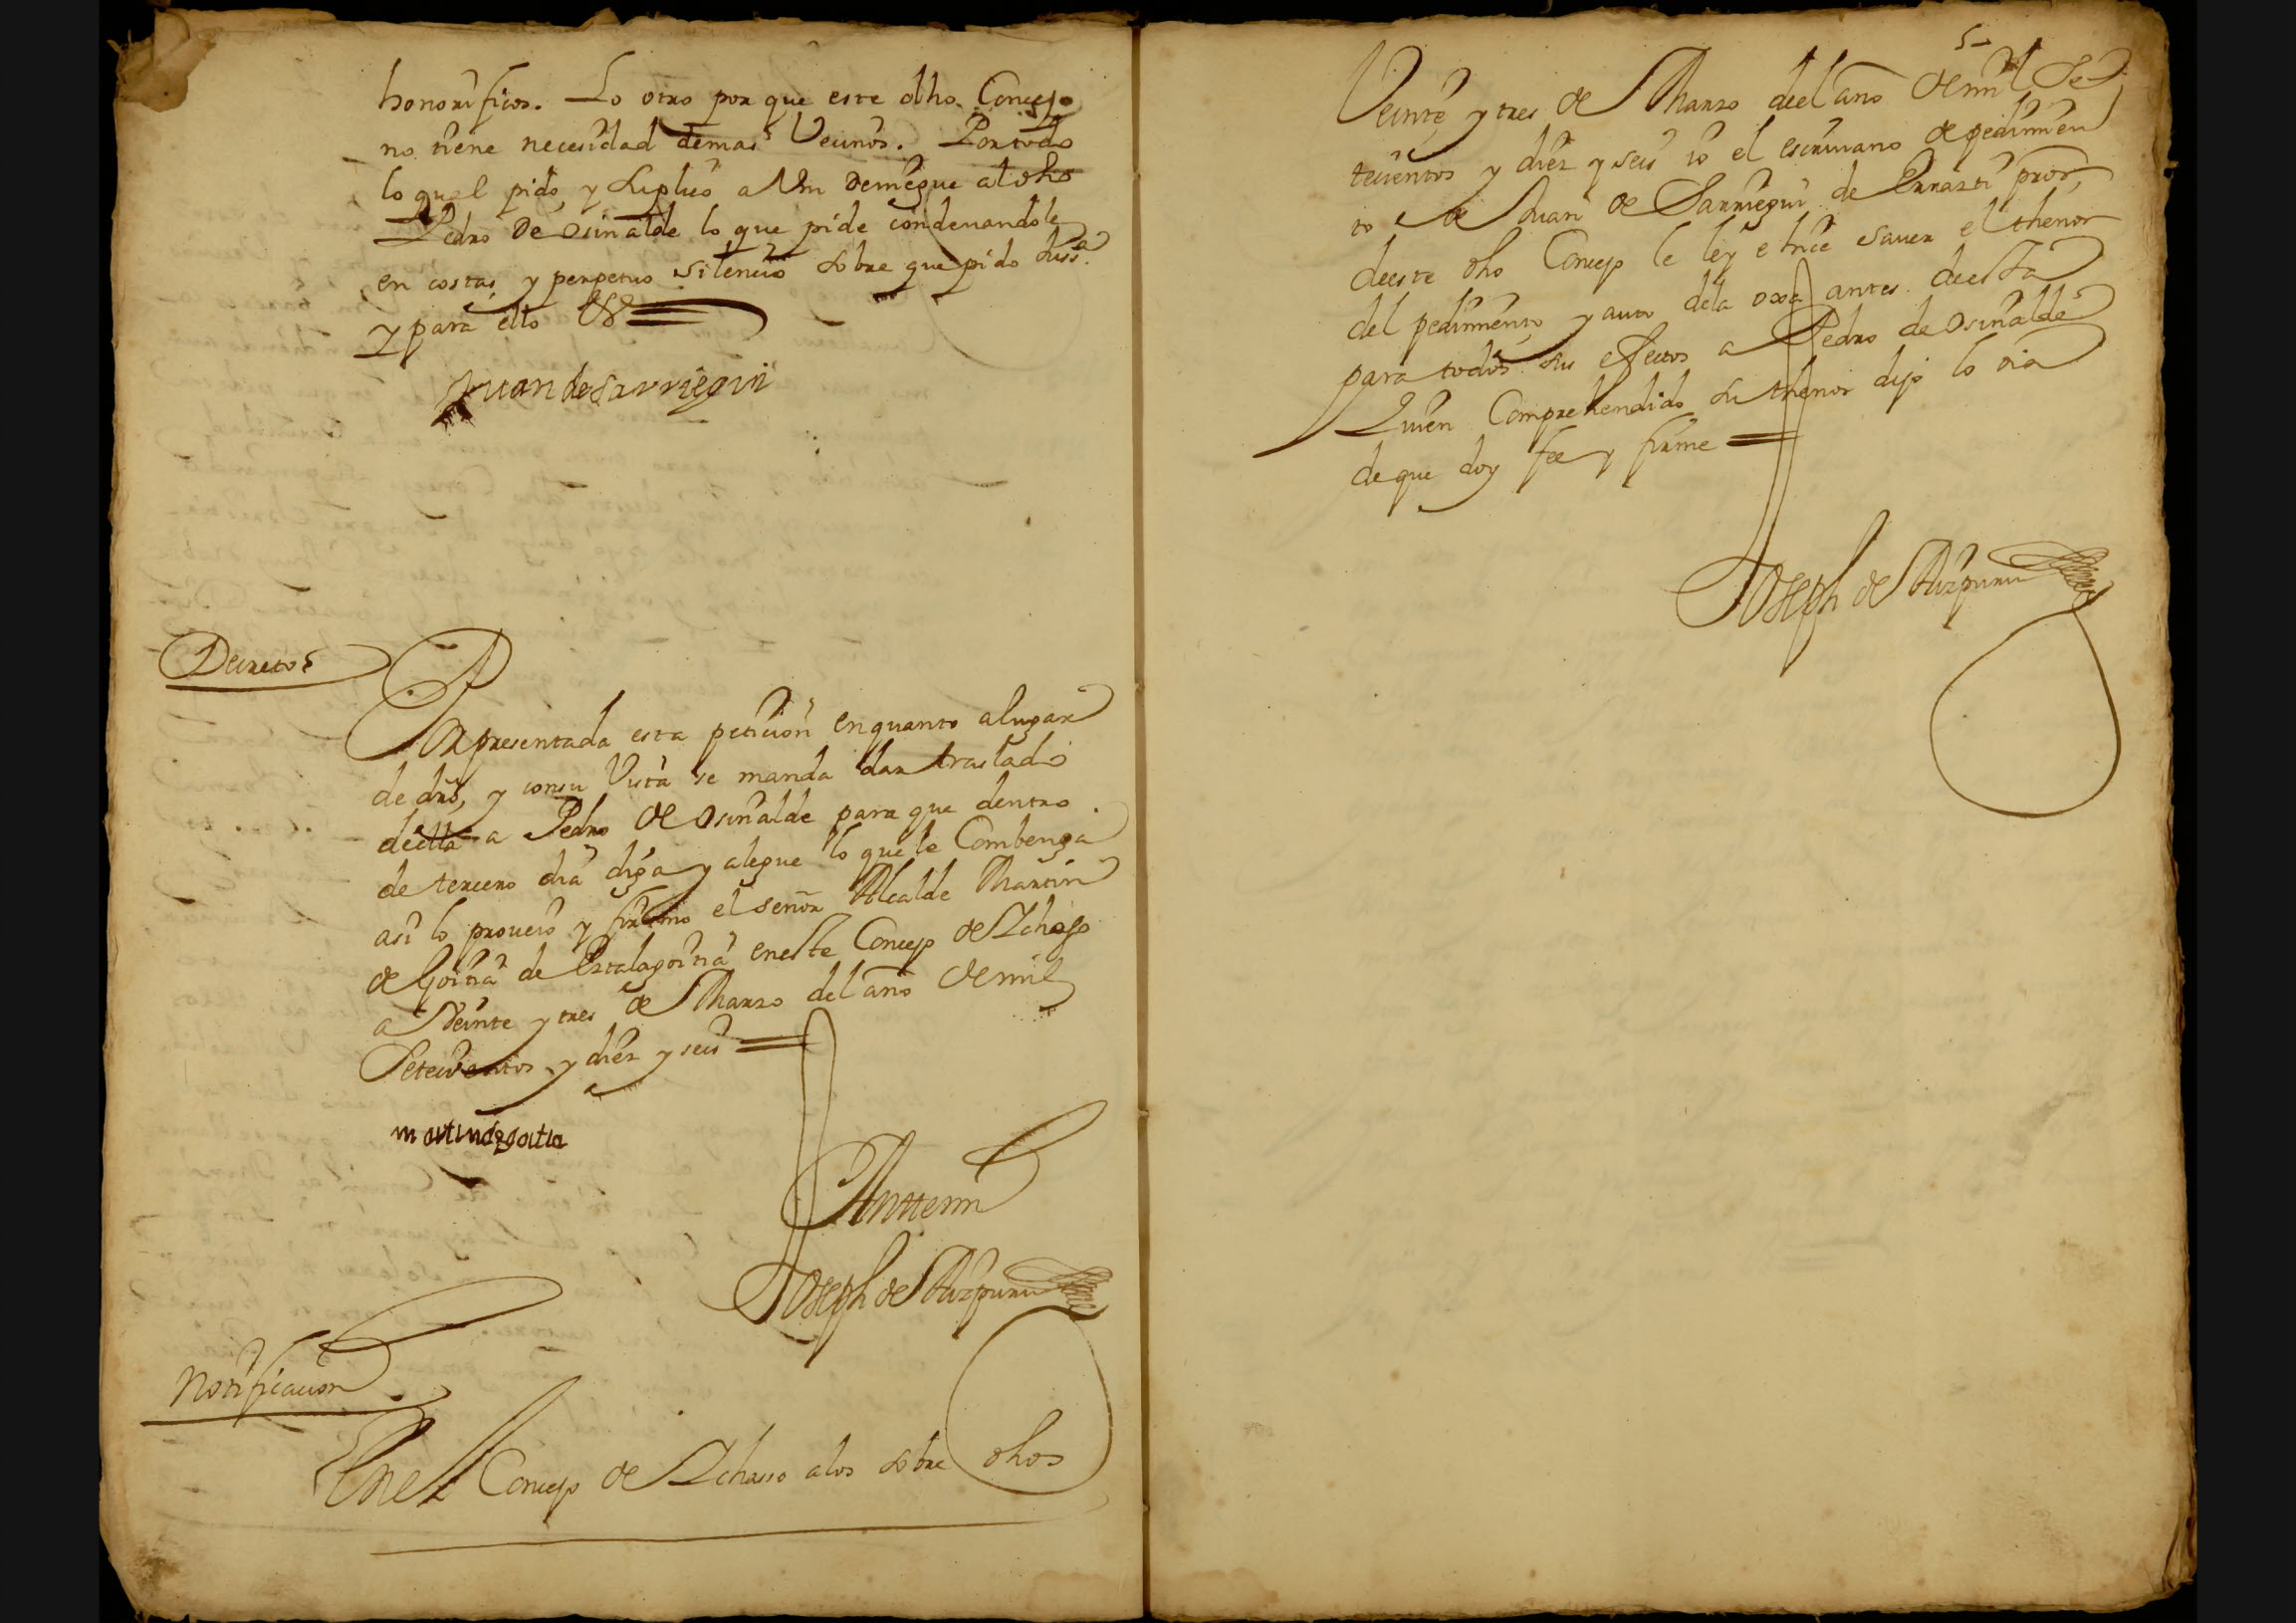 honorificos. Lo otro por que este dho. Concejo
no tiene necesidad demas Vecinos. Portodo
lo qual pido, y suplico a Vm deniegue al dho
Pedro de Osinalde lo que pide condenandole
en costas, y perpetuo silencio sobre que pido Jusa.
y para ello &
Juan de Sarriegui
Decreto
Por presentada esta peticion enquanto alugar
de dro, y consu Vista se manda dar traslado
deella a Pedro de Osinalde para que dentro
de tercero dia diga y alegue lo que le Combenga
asi lo proveio y firmo el señor Alcalde Martin
de Goitia de Estalagoitia eneste Concejo de Ichaso
a Veinte y tres de Marzo del año de mil
Setecientos y diez y seis
martin de goitia
Antemi
Joseph de Aizpuru
Notificacion
Enel Concejo de Ichasso alos sobre dhos
5
Veinte y tres de Marzo deel año de mil Se
tecientos y diez y seis io el escrivano de pedimien
to de Juan de Sarriegui de Errazti pror,
deeste dho Concejo le ley e hice saver el thenor
del pedimiento, y auto dela oxa antes deesta
para todos sus efectos a Pedro de Osinalde
Quien Comprehendido su thenor dijo lo oia
de que doy fee y firme
Joseph de Aizpuru